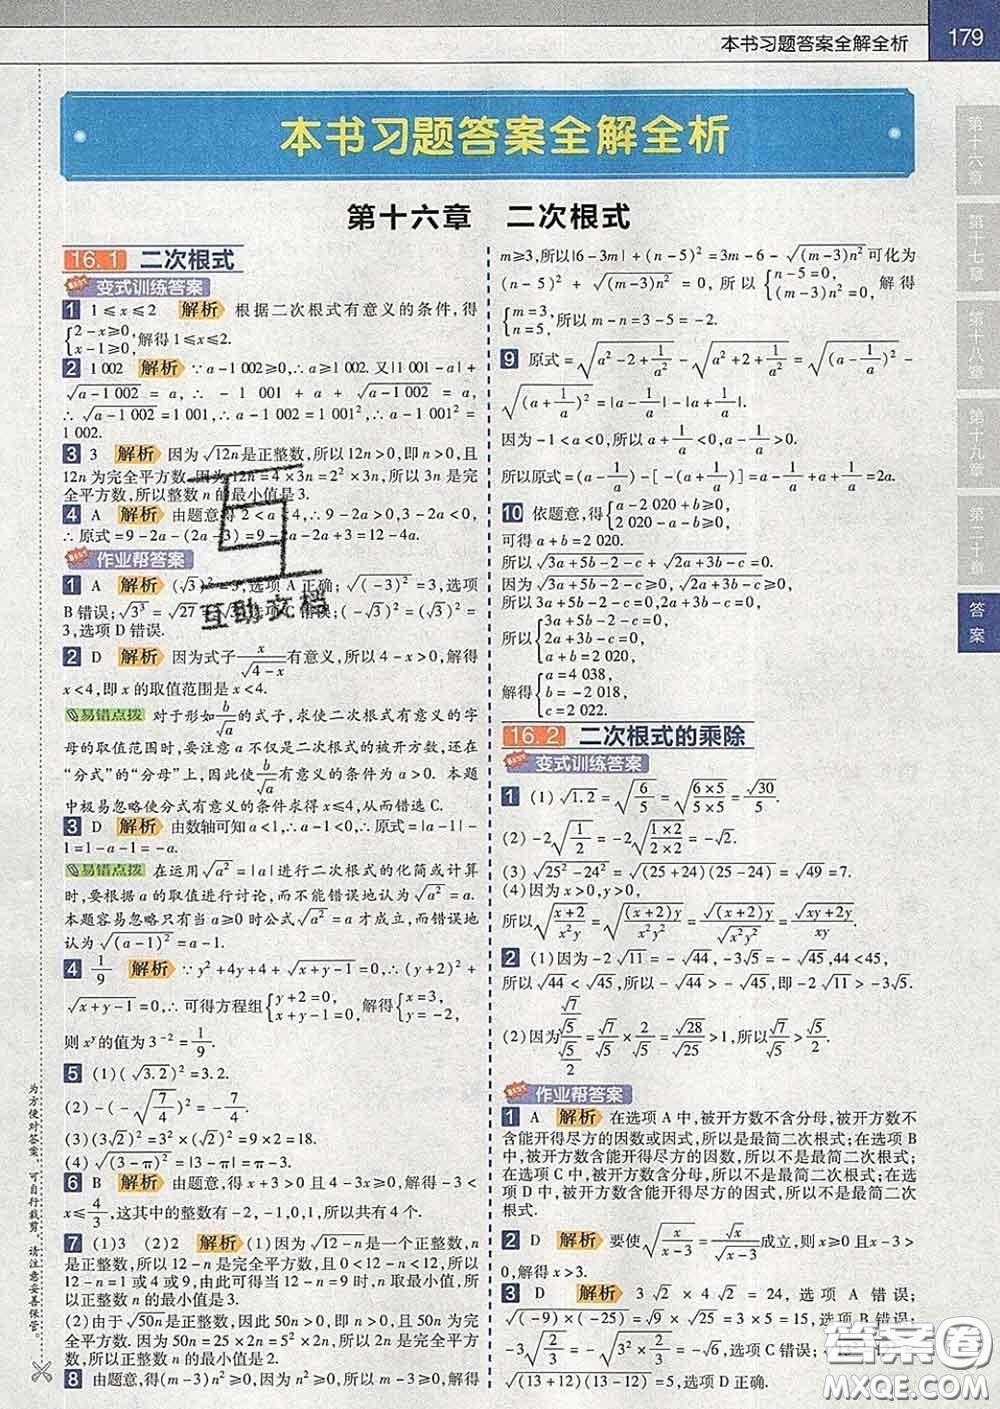 本书习题答案全解全析
179
本书习题答案全解全析
第十六章 二次根式
16.1 二次根式
变式训练答案
1 1≤x≤2 解析 根据二次根式有意义的条件,得
{2-x≥0, x-1≥0, 解得1≤x≤2.
2 1 002 解析 ∵a-1 002≥0,∴a≥1 002.又|1 001-a|+
√(a-1 002)=a, ∴ -1 001+a+√(a-1 002)=a,
∴√(a-1 002)=1 001,∴a-1 002=1 001²,∴a-1 001²=
1 002.
3 3 解析 因为√(12n)是正整数,所以12n>0,即n>0,且
12n为完全平方数.因为12n=4×3n=2²×3n,所以3n是完
全平方数,所以整数n的最小值是3.
4 A 解析 由题意得2<a<4,∴9-2a>0,3-2a<0,
∴原式=9-2a-(2a-3)=9-2a-2a+3=12-4a.
作业帮答案
1 A 解析 (√3)²=3,选项A正确;√((-3)²)=3,选项
B错误;√(3³)=√27= 选项C错误;(-√3)²=(√3)²=
3,选项D错误.
2 D 解析 因为式子x/√(4-x)有意义,所以4-x>0,解得
x<4,即x的取值范围是x<4.
易错点拨 对于形如b/√a的式子,求使二次根式有意义的字
母的取值范围时,要注意a不仅是二次根式的被开方数,还在
“分式”的“分母”上,因此使b/√a有意义的条件为a>0. 本题
中极易忽略使分式有意义的条件求得x≤4,从而错选C.
3 D 解析 由数轴可知a<1,∴a-1<0,∴原式=|a-1|-
1=1-a-1=-a.
易错点拨 在运用√(a²)=|a|进行二次根式的化简或计算
时,要根据a的取值进行讨论,而不能错误地认为√(a²)=a.
本题容易忽略只有当a≥0时公式√(a²)=a才成立,而错误地
认为√((a-1)²)=a-1.
4 1/9 解析 ∵y²+4y+4+√(x+y-1)=0,∴(y+2)²+
√(x+y-1)=0,∴可得方程组{y+2=0, x+y-1=0, 解得{x=3, y=-2,
则x^y的值为3⁻²=1/9.
5 (1)(√3.2)²=3.2.
(2)-(-√(7/4))²=-7/4.
(3)(3√2)²=3²×(√2)²=9×2=18.
(4)√((3-π)²)=|3-π|=π-3.
6 B 解析 由题意,得x+3>0且4-3x≥0,解得-3<
x≤4/3,这其中的整数有-2,-1,0,1,所以共有4个.
7 (1)3 (2)2 解析 (1)因为√(12-n)是一个正整数,n
是正整数,所以12-n是完全平方数,且0<12-n<12,所以
12-n=1或4或9,由此可得当12-n=9时,n取最小值,所
以正整数n的最小值为3.
(2)由于√(50n)是正整数,因此50n>0,即n>0,且50n为完
全平方数.因为50n=25×2n=5²×2n,所以2n是完全平方
数,所以正整数n的最小值是2.
8 由题意,得(m-3)n²≥0,因为n²≥0,所以m-3≥0,解得
m≥3,所以|6-3m|+(n-5)²=3m-6-√((m-3)n²)可化为
(n-5)²+√((m-3)n²)=0,所以{n-5=0, (m-3)n²=0, 解得
{m=3, n=5, 所以m-n=3-5=-2.
9 原式=√(a²-2+1/a²)-√(a²+2+1/a²)=√((a-1/a)²)-
√((a+1/a)²)=|a-1/a|-|a+1/a|.
因为-1<a<0,所以a+1/a<0,a-1/a>0.
所以原式=(a-1/a)-[-(a+1/a)]=a-1/a+a+1/a=2a.
10 依题意,得{a-2 020+b≥0, 2 020-a-b≥0,
可得a+b=2 020.
所以√(3a+5b-2-c)+√(2a+3b-c)=0.
因为√(3a+5b-2-c)≥0,√(2a+3b-c)≥0,
所以3a+5b-2-c=0,2a+3b-c=0,
所以{3a+5b-2-c=0, 2a+3b-c=0, a+b=2 020,
解得{a=4 038, b=-2 018, c=2 022.
16.2 二次根式的乘除
变式训练答案
1 (1)√1.2=√(6/5)=√((6×5)/(5×5))=√30/5.
(2)-2√(1/2)=-2√((1×2)/(2×2))=-√2.
(3)√(25²-24²)=√((25+24)(25-24))=√49=7.
(4)因为x>0,y>0,
所以√((x+2)/(x²y))=√((x+2)y/(x²y²))=√((x+2)y)/√(x²y²)=√(xy+2y)/(xy).
2 (1)因为-2√11=-√44,-3√5=-√45,44<45,
所以√44<√45,所以-√44>-√45,即-2√11>-3√5.
(2)因为(√7/√5)/(√5/2)=√7/√5×2/√5=√28/√25>1,所以√7/√5>√5/2.
作业帮答案
1 A 解析 在选项A中,被开方数不含分母,被开方数不
含能开得尽方的因数或因式,所以是最简二次根式;在选项B
中,被开方数含能开得尽方的因数,所以不是最简二次根式;
在选项C中,被开方数含分母,所以不是最简二次根式;在选
项D中,被开方数含能开得尽方的因式,所以不是最简二次
根式.
2 D 解析 要使√(x/(x-3))=√x/√(x-3)成立,则{x≥0, x-3>
0,解得x>3.
3 D 解析 3√2×4√2=24,选项A错误;
√((-9)×(-25))=√(9×25)=3×5=15,选项B错误;
-3√(2/3)=-√(3²×2/3)=-√6,选项C错误;
√((13+12)(13-12))=5,选项D正确.
第十六章
第十七章
第十八章
第十九章
第二十章
答案
为方便对答案,可自行裁剪,请注意妥善保管。
互助文档
答案圈
MXQE.COM